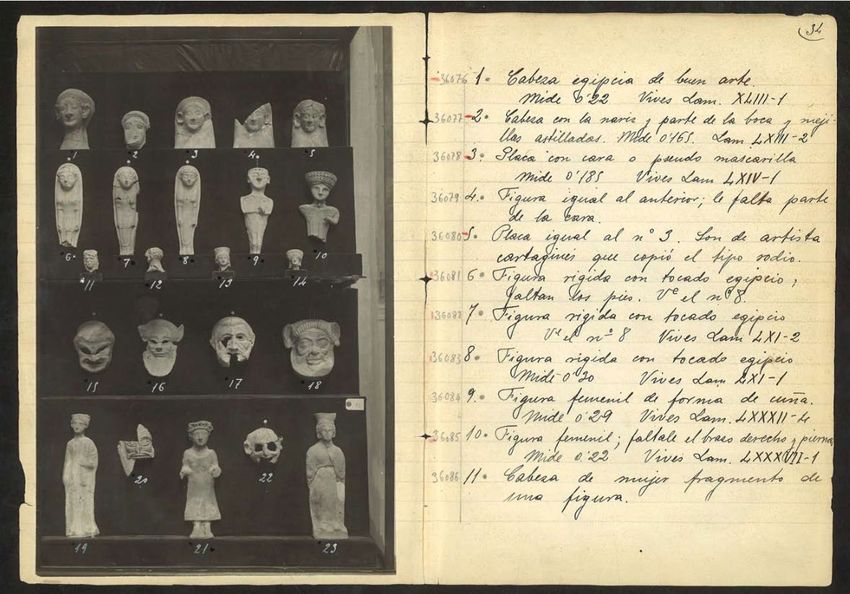 1 2 3 4 5
6 7 8 9 10
11 12 13 14
15 16 17 18
20 22
19 21 23
34
36076 1. Cabeza egipcia de buen arte.
Mide 0'22 Vives Lam. XLIII-1
36077 2. Cabeza con la nariz y parte de la boca y meji-
llas astilladas. Mide 0'165. Lam LXIII-2
36078 3. Placa con cara o pseudo mascarilla
Mide 0'185 Vives Lam LXIV-1
36079 4. Figura igual al anterior; le falta parte
de la cara.
36080 5. Placa igual al nº 3. Son de artista
cartagines que copió el tipo rodio.
36081 6. Figura rigida con tocado egipcio;
faltan los pies. Vº el nº 8.
36082 7. Figura rigida con tocado egipcio
Vº el nº 8 Vives Lam LXI-2
36083 8. Figura rigida con tocado egipcio
Mide 0'30 Vives Lam LXI-1
36084 9. Figura femenil de forma de cuña.
Mide 0'29 Vives Lam. LXXXII-4
36085 10. Figura femenil; faltale el brazo derecho y pierna
Mide 0'22 Vives Lam. LXXXVII-1
36086 11. Cabeza de mujer fragmento de
una figura.